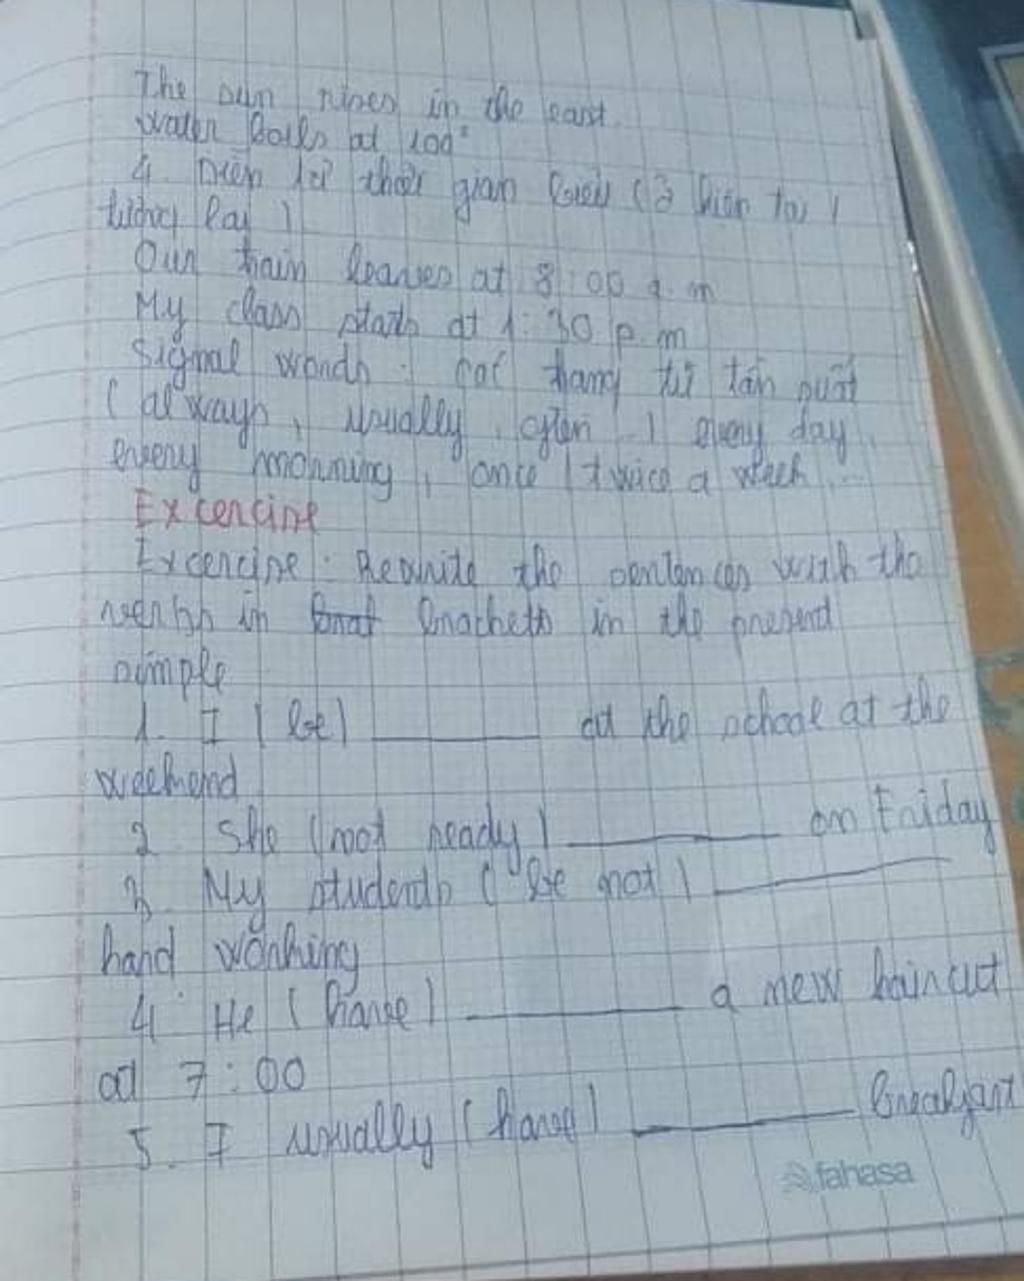 The sun rises in the east
Water boils at 100°
4. Diễn tả thời gian biểu (ở hiện tại /
tương lai )
Our train leaves at 8:00 a.m
My class starts at 1:30 p.m
Signal words : các trạng từ tần suất
( always , usually , often ... ) every day ,
every morning , once / twice a week ...
Excercise
Excercise : Rewrite the sentences with the
verbs in brackets in the present
simple
1. I ( be ) ______ at the school at the
weekend
2. She ( not ready ) ______ on Friday
3. My students ( be not ) ______
hard working
4. He ( have ) ______ a new haircut
at 7:00
5. I usually ( have ) ______ breakfast
fahasa